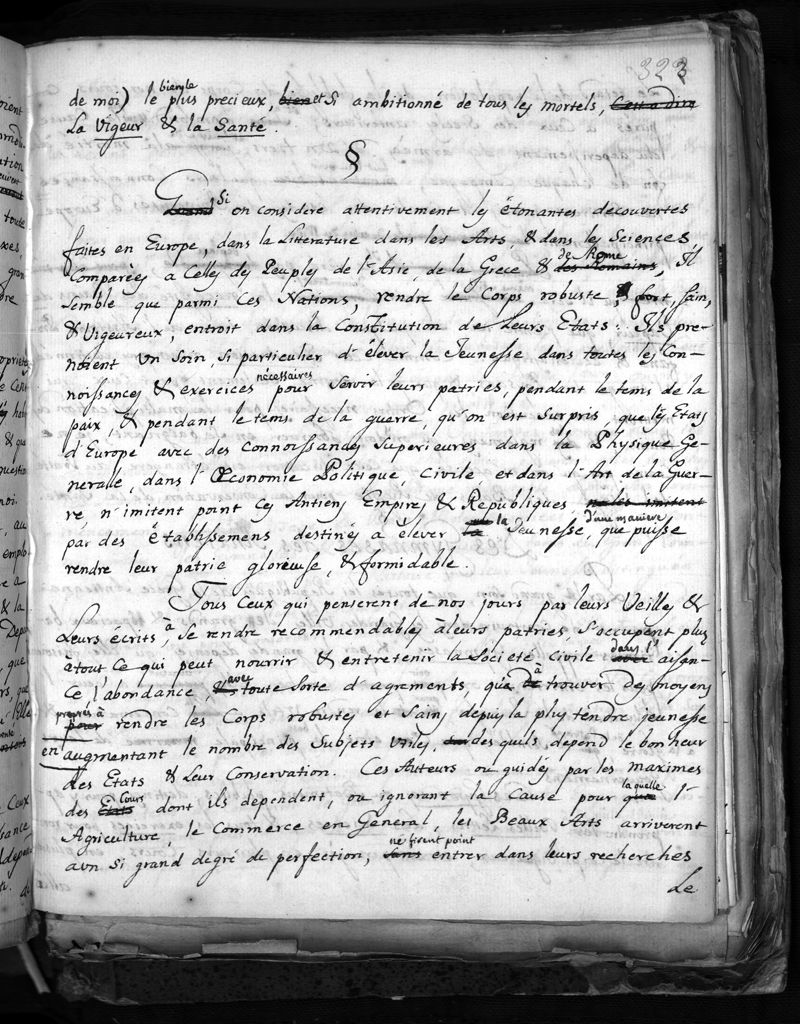 323
de moi) le plus precieux, bien et si ambitionné de tous les mortels, c'est a dire
La Vigeur & la Santé.
§
Quand Si on considere attentivement les étonantes decouvertes
faites en Europe, dans la Litterature dans les Arts, & dans les Sciences,
Comparées a Celles des Peuples de l'Asie, de la Grece & des Romains de Rome, Il
Semble que parmi Ces Nations, rendre le Corps robuste, & fort, Sain,
& Vigeureux, entroit dans la Constitution de Leurs Etats: Ils pre-
noient Un Soin, Si particulier d'élever la Jeunesse dans toutes les Con-
noissances & exercices nécessaires pour Servir leurs patries, pendant le tems de la
paix, & pendant le tems de la guerre, qu'on est Surpris, que les Etats
d'Europe avec des Connoissances Superieures dans la Physique Ge-
nerale, dans l'Œconomie Politique, Civile, et dans l'Art de la Guer-
re, n'imitent point Ces Antiens Empires & Republiques, ne les imitent
par des établissemens destinés a élever la Jeunesse, d'une maniere que puisse
rendre leur patrie glorieuse, & formidable.
Tous Ceux qui penserent de nos jours par leurs Veilles &
Leurs écrits, à Se rendre recommendables à leurs patries, S'occupent plus
à tout Ce qui peut nourrir & entretenir la Societé Civile dans l'aisan-
Ce, l'abondance, & avec toute Sorte d'agrements, que de à trouver des moyens
pour propres à rendre les Corps robustes et Sains depuis la plus tendre jeunesse
en augmentant le nombre des Subjets Utiles, des quels depend le bonheur
des Etats & Leur Conservation. Ces Auteurs ou guidés par les maximes
des Etats Cours dont ils dependent, ou ignorant la Cause pour laquelle l'
Agriculture, le Commerce en General, les Beaux Arts arriverent
a un Si grand degré de perfection, Sans né firent point entrer dans leurs recherches
de